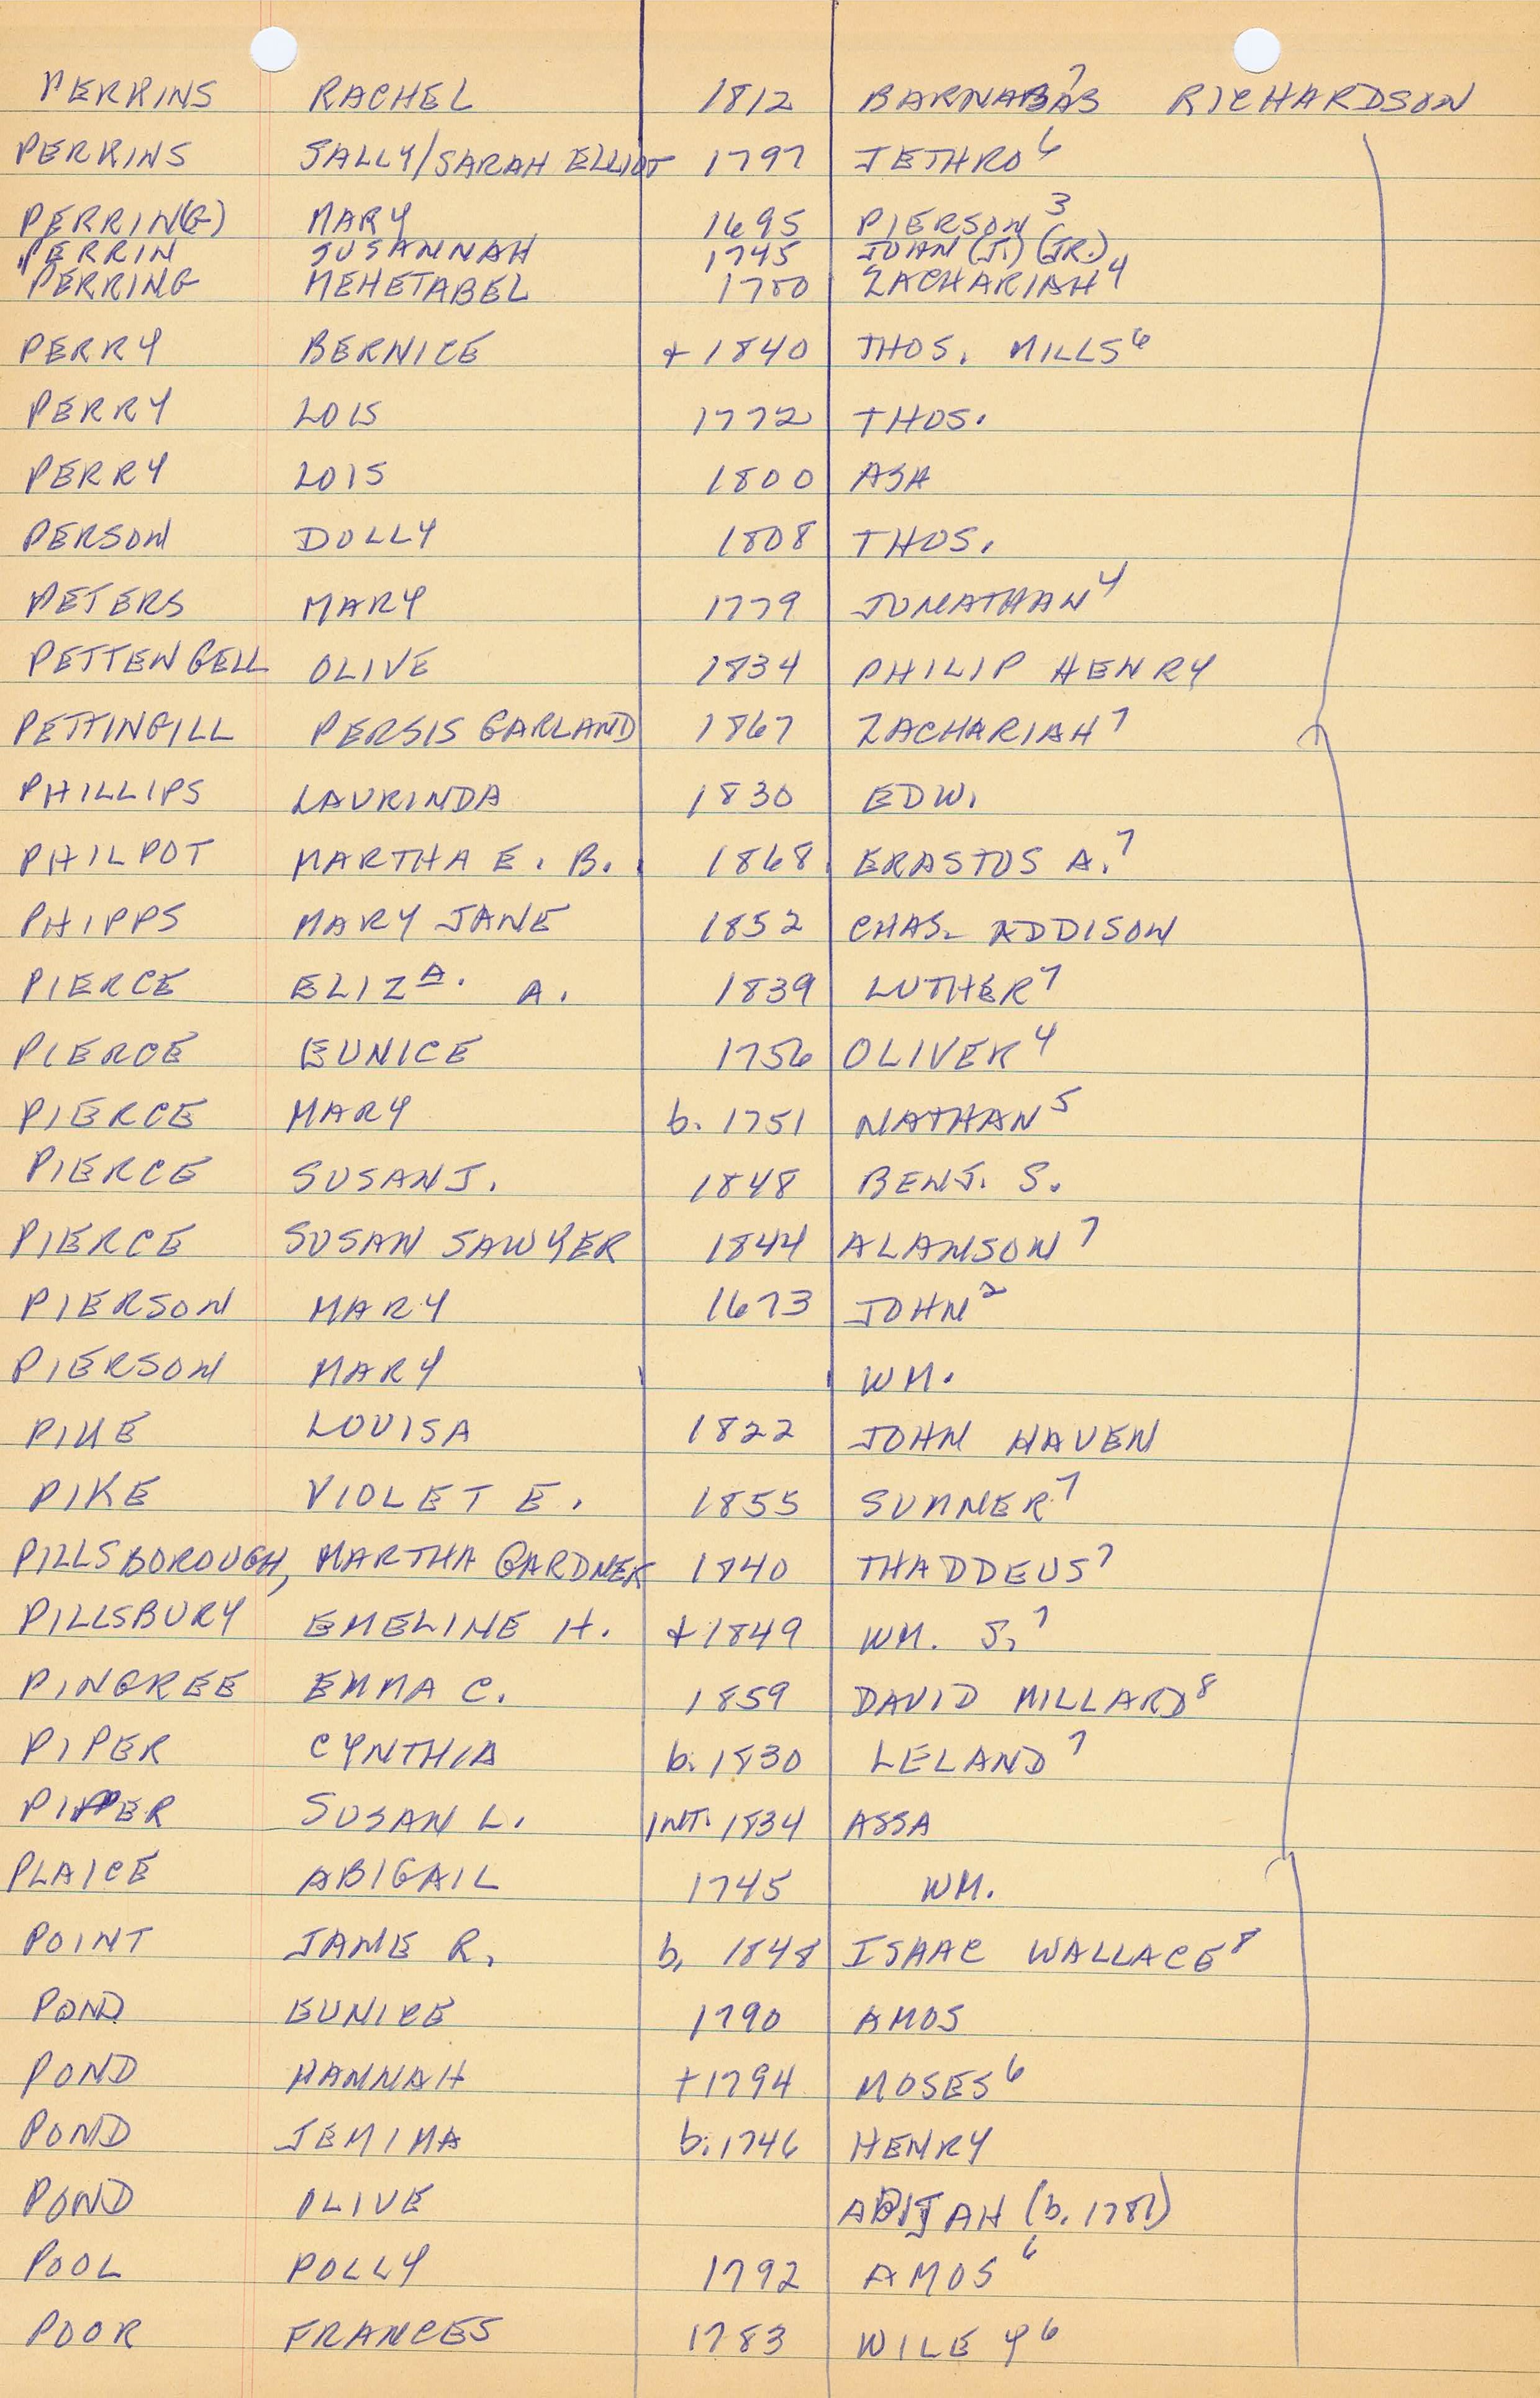 PERKINS RACHEL 1812 BARNABAS⁷ RICHARDSON
PERKINS SALLY/SARAH ELLIOT 1797 JETHRO⁶
PERRIN(G) MARY 1695 PIERSON³
PERRIN SUSANNAH 1745 JOHN (J.) (JR.)
PERRING MEHETABEL 1700 ZACHARIAH⁴
PERRY BERNICE + 1840 THOS. MILLS⁶
PERRY LOIS 1772 THOS.
PERRY LOIS 1800 ASA
PERSON DOLLY 1808 THOS.
PETERS MARY 1779 JONATHAN⁴
PETTENGELL OLIVE 1834 PHILIP HENRY
PETTINGILL PERSIS GARLAND 1867 ZACHARIAH⁷
PHILLIPS LAURINDA 1830 EDW.
PHILPOT MARTHA E. B. 1868 ERASTUS A.⁷
PHIPPS MARY JANE 1852 CHAS. ADDISON
PIERCE ELIZᴬ. A. 1839 LUTHER⁷
PIERCE EUNICE 1756 OLIVER⁴
PIERCE MARY b. 1751 NATHAN⁵
PIERCE SUSAN J. 1848 BENJ. S.
PIERCE SUSAN SAWYER 1844 ALANSON⁷
PIERSON MARY 1673 JOHN²
PIERSON MARY WM.
PIKE LOUISA 1822 JOHN HAVEN
PIKE VIOLET E. 1855 SUMNER⁷
PILLSBOROUGH, MARTHA GARDNER 1840 THADDEUS⁷
PILLSBURY EMELINE H. + 1849 WM. S.⁷
PINGREE EMMA C. 1859 DAVID MILLARD⁸
PIPER CYNTHIA b. 1830 LELAND⁷
PIPER SUSAN L. INT. 1834 ASSA
PLAICE ABIGAIL 1745 WM.
POINT JANE R. b. 1848 ISAAC WALLACE⁸
POND EUNICE 1790 AMOS
POND HANNAH + 1794 MOSES⁶
POND JEMIMA b. 1746 HENRY
POND OLIVE ABIJAH (b. 1781)
POOL POLLY 1792 AMOS⁶
POOR FRANCES 1783 WILEY⁶